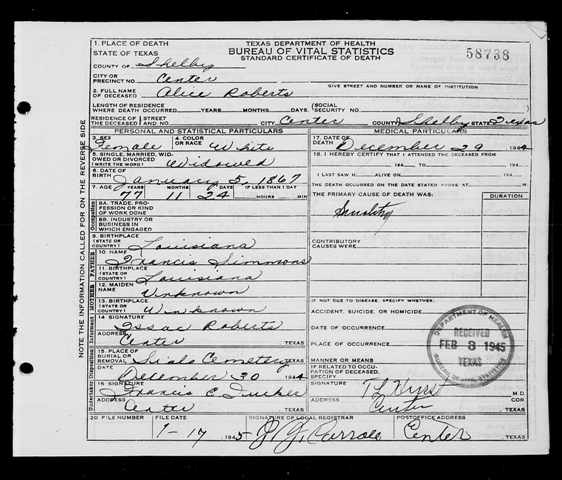 1. PLACE OF DEATH TEXAS DEPARTMENT OF HEALTH
STATE OF TEXAS BUREAU OF VITAL STATISTICS 58738
STANDARD CERTIFICATE OF DEATH
COUNTY OF Shelby
CITY OR PRECINCT NO. Center GIVE STREET AND NUMBER OR NAME OF INSTITUTION
2. FULL NAME OF DECEASED Alice Roberts
LENGTH OF RESIDENCE WHERE DEATH OCCURRED YEARS MONTHS DAYS (SOCIAL SECURITY NO.
RESIDENCE OF THE DECEASED STREET AND NO. CITY Center COUNTY Shelby STATE Texas
PERSONAL AND STATISTICAL PARTICULARS MEDICAL PARTICULARS
3. SEX Female 4. COLOR OR RACE White 17. DATE OF DEATH December 29 1944
5. SINGLE, MARRIED, WIDOWED OR DIVORCED (WRITE THE WORD) Widowed 18. I HEREBY CERTIFY THAT I ATTENDED THE DECEASED FROM
6. DATE OF BIRTH January 5, 1867 I LAST SAW H ALIVE ON
7. AGE YEARS MONTHS DAYS IF LESS THAN 1 DAY 77 11 24 HOURS MIN THE DEATH OCCURRED ON THE DATE STATED ABOVE AT M.
THE PRIMARY CAUSE OF DEATH WAS: DURATION
8A. TRADE, PROFESSION OR KIND OF WORK DONE Senility
8B. INDUSTRY OR BUSINESS IN WHICH ENGAGED
9. BIRTHPLACE (STATE OR COUNTRY) Louisiana CONTRIBUTORY CAUSES WERE:
10. NAME Francis Simmons
11. BIRTHPLACE (STATE OR COUNTRY) Louisiana
12. MAIDEN NAME Unknown
13. BIRTHPLACE (STATE OR COUNTRY) Unknown IF NOT DUE TO DISEASE, SPECIFY WHETHER:
ACCIDENT, SUICIDE, OR HOMICIDE
14. SIGNATURE Issac Roberts DATE OF OCCURRENCE
ADDRESS Center TEXAS PLACE OF OCCURRENCE
15. PLACE OF BURIAL OR REMOVAL Cemetery TEXAS MANNER OR MEANS
DATE December 30 1944 IF RELATED TO OCCUPATION OF DECEASED, SPECIFY
16. SIGNATURE Francis E Tucker SIGNATURE T L Hurst M.D.
ADDRESS Center TEXAS ADDRESS Center TEXAS
20. FILE NUMBER FILE DATE SIGNATURE OF LOCAL REGISTRAR POSTOFFICE ADDRESS
1-17 1945 Center TEXAS
DEPARTMENT OF HEALTH
RECEIVED
FEB 8 1945
TEXAS
BUREAU OF VITAL STATISTICS
NOTE THE INFORMATION CALLED FOR ON THE REVERSE SIDE
Occupation
FATHER
MOTHER
Informant
Disposition
Undertaker